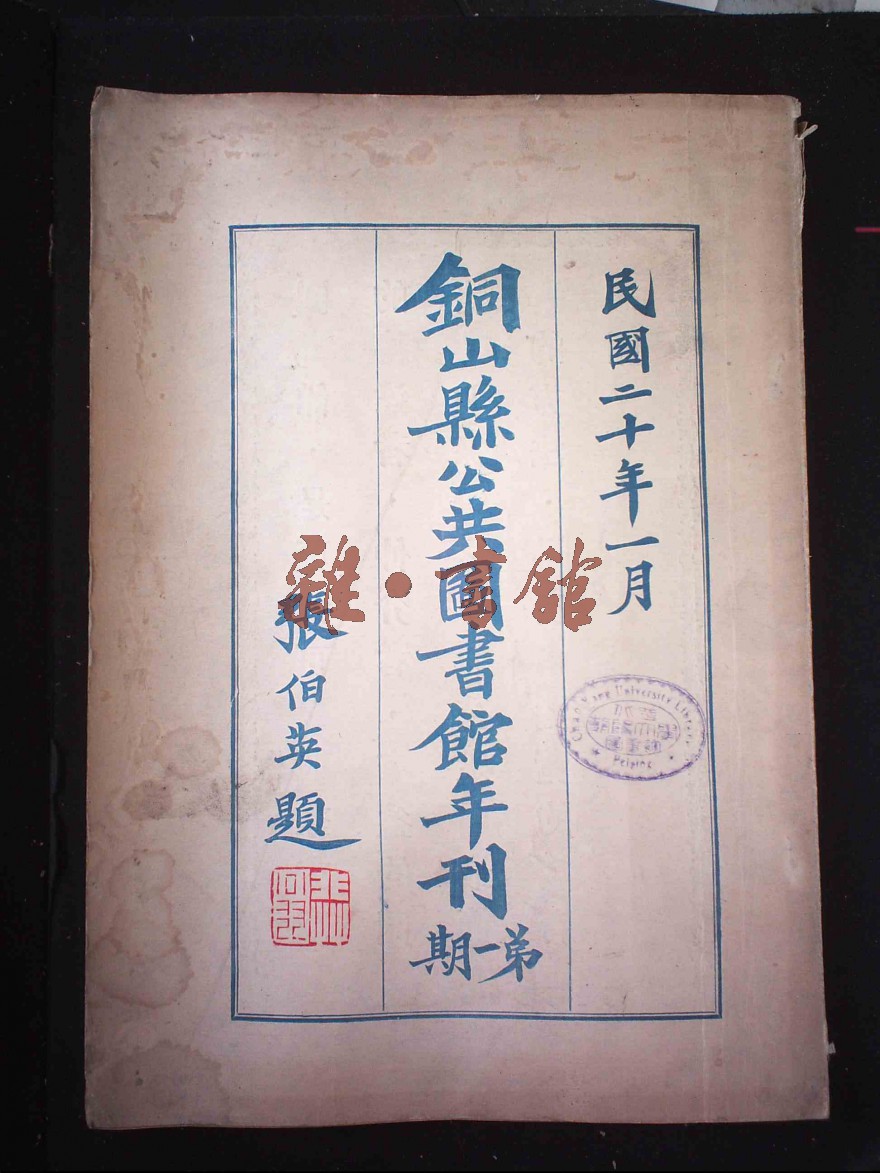 民國二十年一月
銅山縣公共圖書館年刊
弟一期
張伯英題
雜·書舘
Chao Yang University Library
Peiping